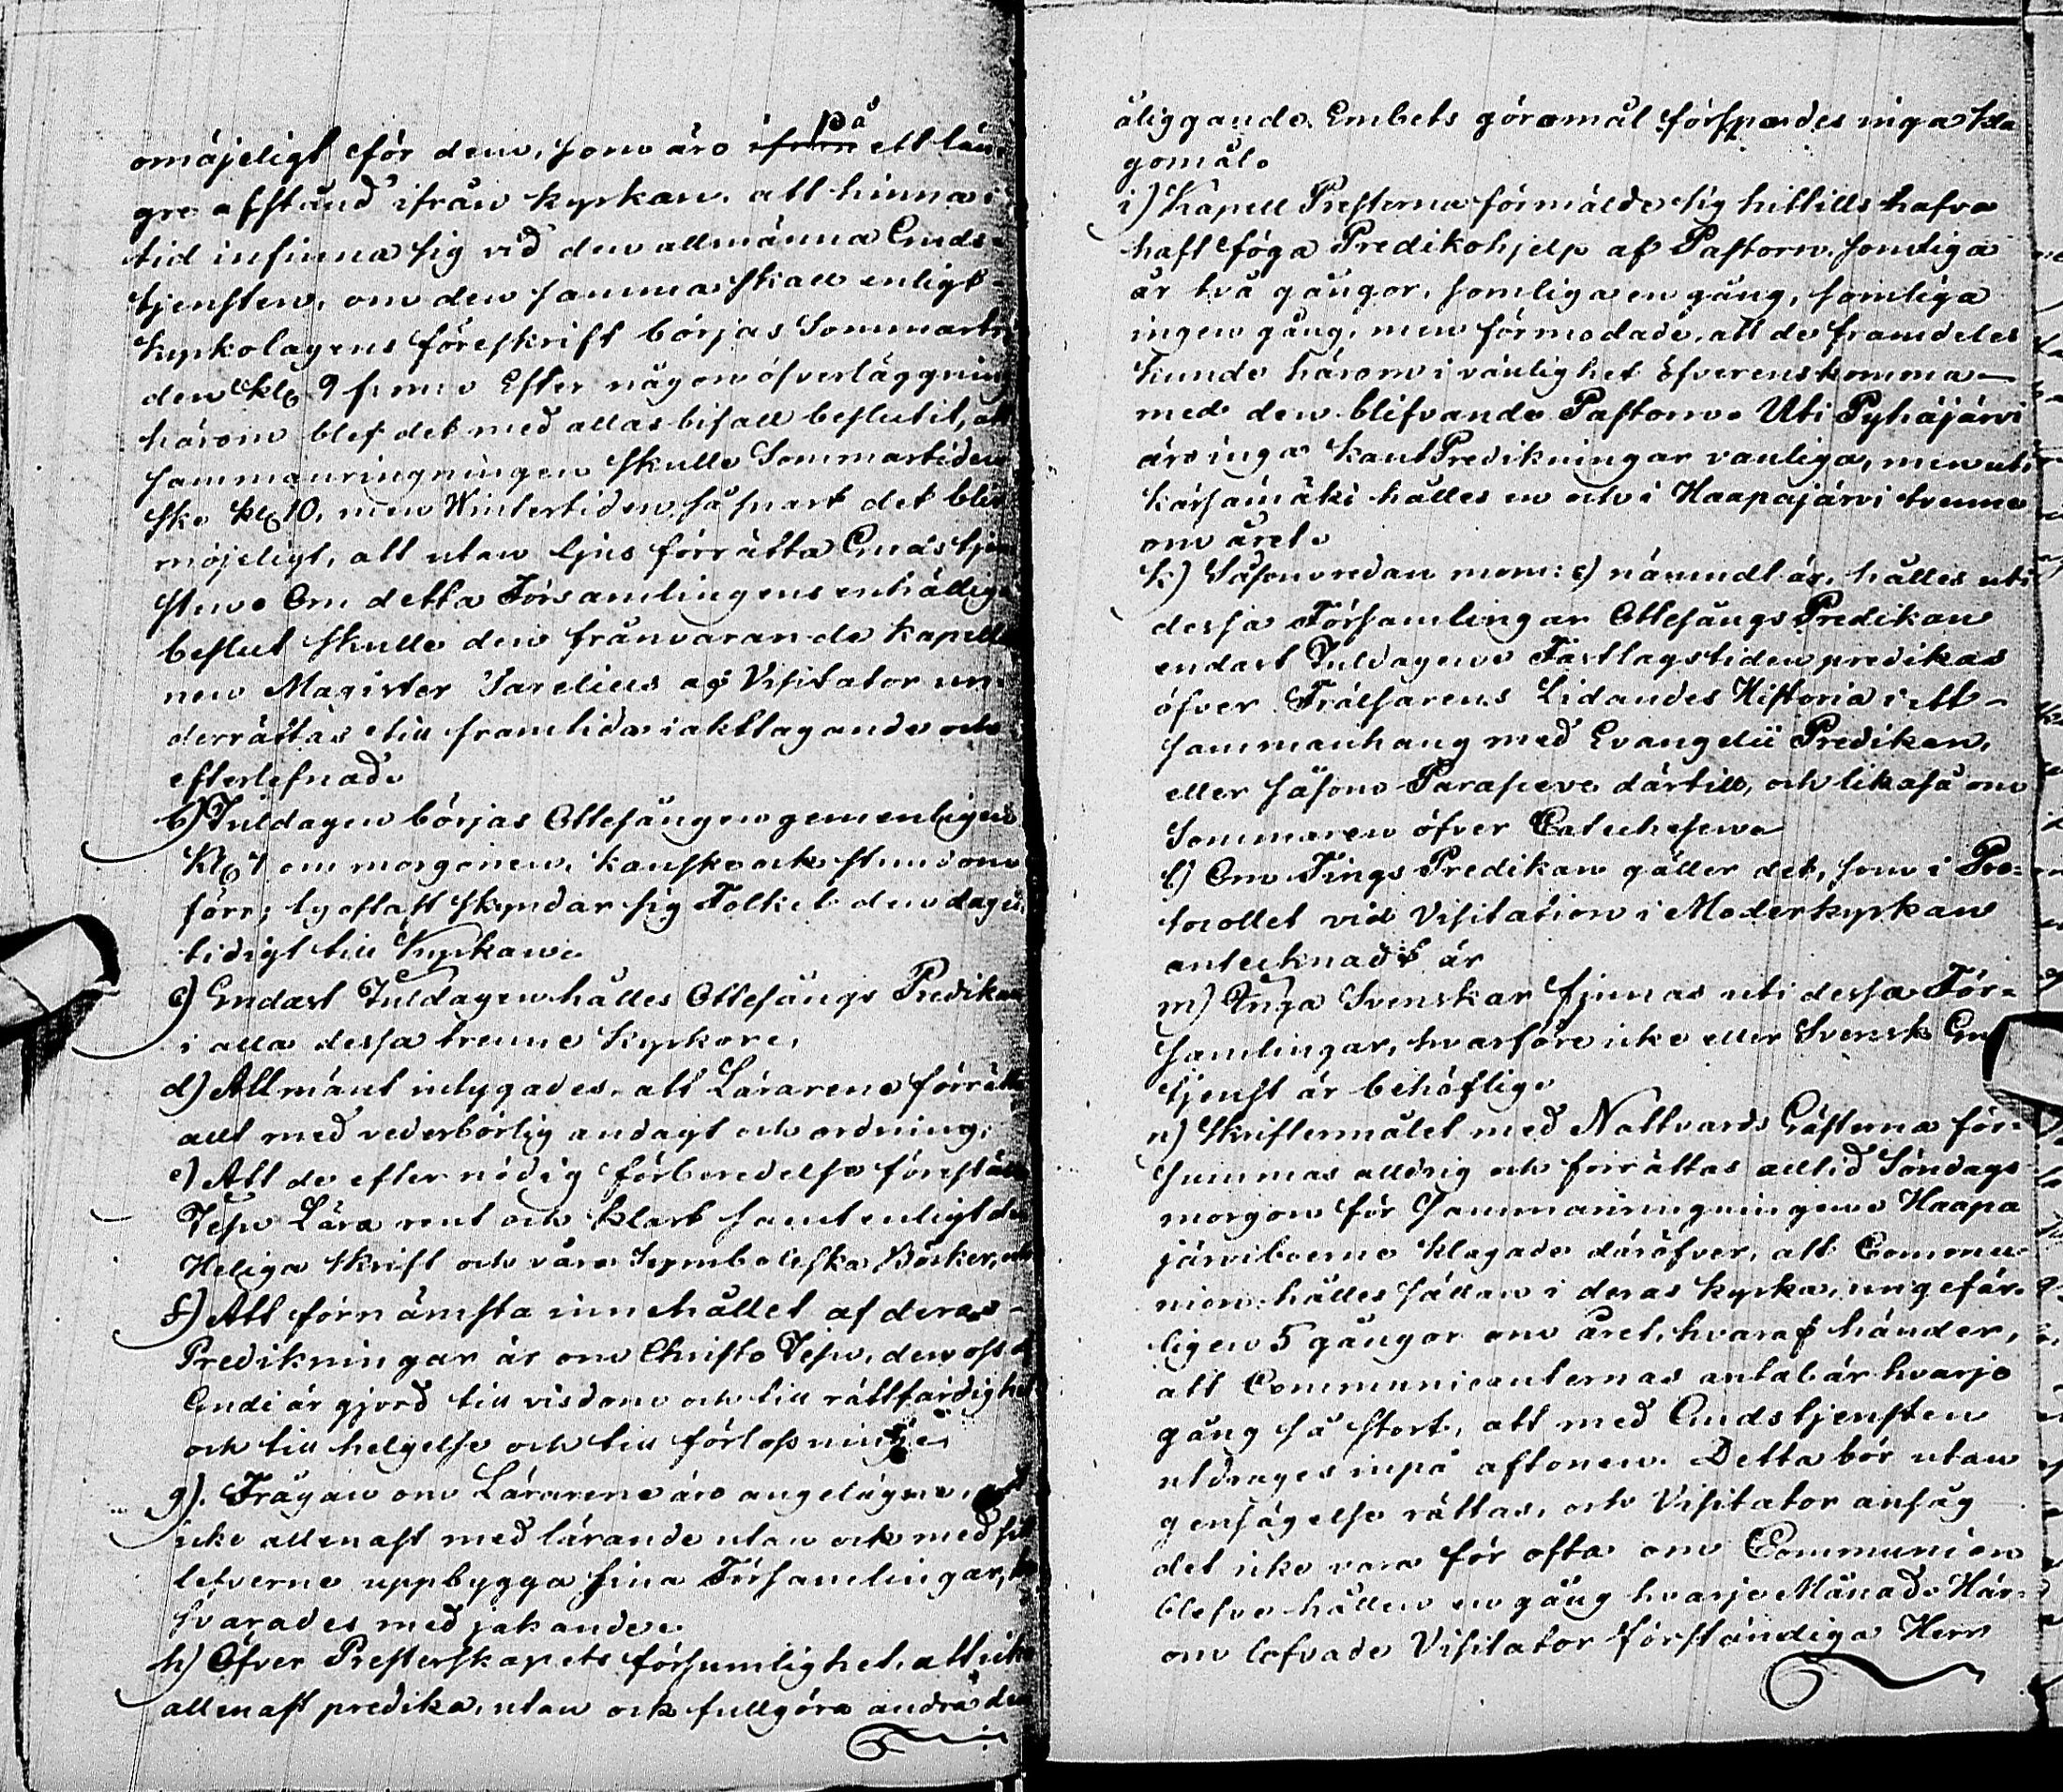 omöjeligt för dem, som äro på ett län-
gre afstånd ifrån kyrkan, att hinna i
tid infinna sig vid den allmänna Guds-
tjensten, om den samma skall enligt
Kyrkolagens föreskrift börjas Sommarti-
den kl. 9 f. m. Efter någon öfverläggning
härom blef det med allas bifall beslutit, att
sammanringningen skulle Sommartiden
ske kl. 10, men Wintertiden, så snart det blir
möjeligt, att utan ljus förrätta Gudstjen-
sten. Om detta Församlingens enhälliga
beslut skulle den frånvarande kapella-
nen Magister Sarelius af Visitator un-
derrättas till framtida iakttagande och
efterlefnad.
b) Juldagen börjas Ottesången gemenligen
kl. 4 om morgonen, kanske ock stundom
förr; ty oftast skyndar sig Folket den dagen
tidigt till Kyrkan.
c) Endast Juldagen hålles Ottesångs Predikan
i alla dessa trenne kyrkor.
d) Allmänt intygades, att Lärarene förrätta
allt med vederbörlig andagt och ordning.
e) Att de efter nödig förberedelse föreställa
Jesu Lära rent och klart samt enligt den
Heliga Skrift och våra Symboliska Böcker, och
f) Att förnämsta innehållet af deras
Predikningar är om Christo Jesu, den oss af
Gudi är gjord till visdom och till rättfärdighet
och till helgelse och till förlossning.
g). Frågan om Lärarene äro angelägne, att
icke allenast med lärande utan ock med sitt
lefverne uppbygga sina Församlingar,
svarades med jakande.
h) Öfver Presterskapets försumlighet, att icke
allenast predika, utan ock fullgöra andra dem
åliggande Embets göromål förspordes inga kla-
gomål.
i) Kapell Presterna förmälde sig hittills hafva
haft föga Predikohjelp af Pastorn, somliga
år två gångor, somliga en gång, somliga
ingen gång, men förmodade, att de framdeles
kunde härom i vänlighet öfverenskomma
med den blifvande Pastorn. Uti Pyhäjärvi
äro inga Predikningar vanliga, men uti
Kärsämäki hålles en och i Haapajärvi trenne
om året.
k) Såsom redan mom: c) nämndt är, hålles uti
dessa Församlingar Ottesångs Predikan
endast Juldagen. Fastlagstiden predikas
öfver Frälsarens Lidandes Historia i ett
sammanhang med Evangelii Predikan,
eller såsom Parasceve därtill, och likaså om
Sommaren öfver Catechesen.
l) Om Tings Predikan gäller det, som i Pro-
tocollet vid Visitation i Moderkyrkan
antecknadt är
m) Inga Svenskar finnas uti dessa För-
samlingar, hvarföre icke eller Svensk Gu
tjenst är behöflig.
n) Skriftermålet med Nattvards Gästerna för-
summas alldrig och förrättas alltid Söndags
morgon för Sammanringningen. Haapa
järviboerne klagade däröfver, att Commu-
nion hålles sällan i deras kyrka, ungefär-
ligen 5 gångor om året, hvaraf händer,
att Communicanternas antal är hvarje
gång så stort, att med Gudstjensten
utdrages inpå aftonen. Detta bör utan
gensägelse rättas, och Visitator ansåg
det icke vara för ofta om Communion
blefve hållen en gång hvarje Månad. Här-
om lofvade Visitator förständiga Herr